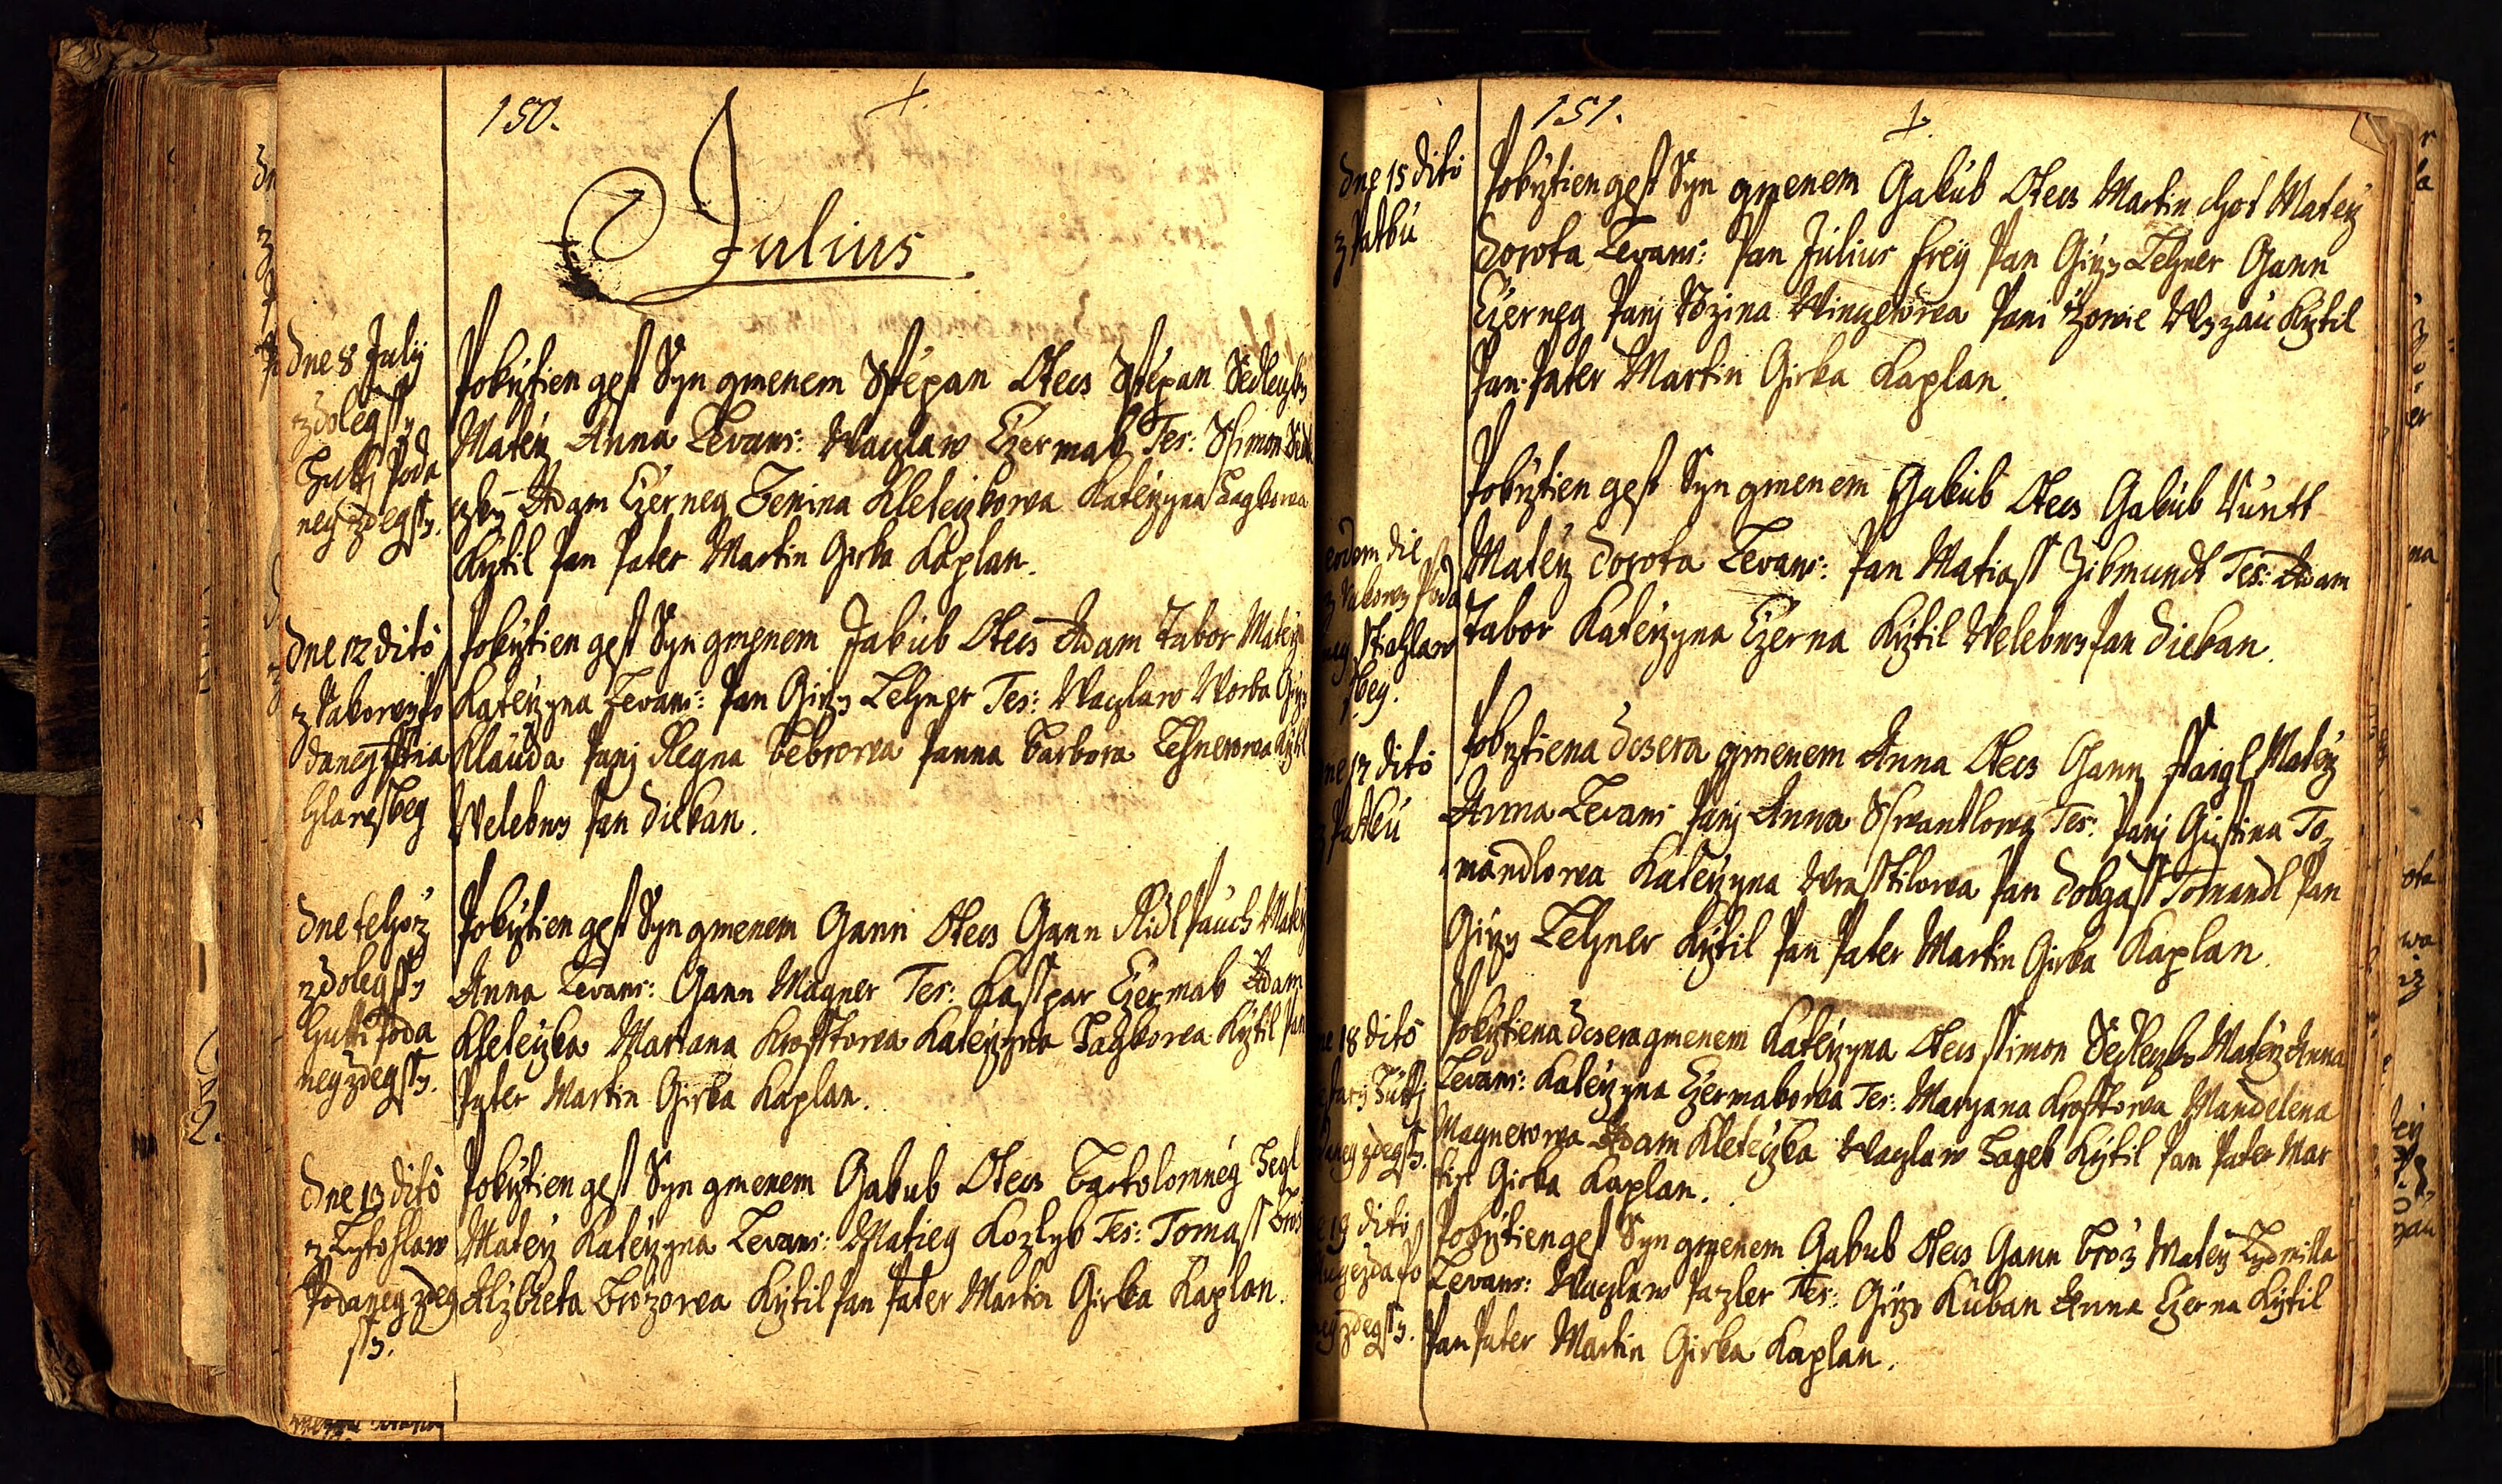 150.
Julius
dne 8 July
z dolegssy
Hutti Poda
neg zdegssy.
Pokrztien gest Syn gmenem Sstepan Otecz Sstepan Sedleczky
Paterz Anna Levans: Waczlaw Czermak Tes: Ssimon Sedl
czky Adam Czerneg Zenina Kleteczkowa Katerzyna Hagkowa
Krztil Pan Pater Martin Girka Kaplan.
dne 12 dito
z Rakowy Po
daneg Sstia
hlawskeg
Pokrztien gest Syn gmenem Jakub Otecz Adam Tabor Materz
Katerzyna Levans: Pan Girzy Lehner Tes: Waczlaw Worka Girzy
Klauda Panj Regna Bebrowa Panna Barbora Lehnerowa Krztil
Welebny Pan Diekan.
dne tehoz
z dolegssy
Hutti Poda
neg zdegssy.
Pokrztien gest Syn gmenem Gann Otecz Gann Ridl Pauch Materz
Anna Levans: Gann Wagner Tes: Kasspar Czermak Adam
Kleteczka Mariana Krosstowa Katerzyna Hagkowa Krztil Pan
Pater Martin Girka Kaplan.
dne 13 dito
z Lytohlaw
Podaneg zdeg
ssy.
Pokrztien gest Syn gmenem Gakub Otecz Bartolomneg Hegl
Materz Katerzyna Levans: Matieg Kozlyk Tes: Tomass Broz
Alzbieta Brozowa Krztil Pan Pater Martin Girka Kaplan.
151.
dne 15 dito
z Patku
Pokrztien gest Syn gmenem Gakub Otecz Martin chot Materz
Dorota Levans: Pan Julius Frey Pan Girzy Lehner Gann
Czerneg Panj Rozina Winczetowa Pani
Pan Pater Martin Girka Kaplan.
z Rakowy Poda
neg Stiahlaw
skeg.
Pokrztien gest Syn gmenem Gakub Otecz Gakub Kuntt
Materz Dorota Levans: Pan Matiass Zikmundt Tes: Adam
Tabor Katerzyna Czerna Krztil Welebny Pan Diekan.
ne 17 dito
z Patku
Pokrztiena dcera gmenem Anna Otecz Gann Materz
Anna Levans Panj Anna Tes: Panj Giustina To
mandlowa Katerzyna Wrasstilowa Pan Tobyass Tomandl Pan
Girzy Lehner Krztil Pan Pater Martin Girka Kaplan.
ne 18 dito
stary Hutti
neg zdegssy.
Pokrztiena dcera gmenem Katerzyna Otecz Ssimon Sedleczky Materz Anna
Levans: Katerzyna Czermakowa Tes: Maryana Krosstowa Mandelena
Wagnerowa Adam Kleteczka Waczlaw Hagek Krztil Pan Pater Mar
tin Girka Kaplan.
19 dito
Augezda Po
neg zdegssy.
Pokrztien gest Syn gmenem Gakub Otecz Gann Broz Materz Lydmilla
Levans: Waczlaw Paczler Tes: Girzy Kuban Anna Czerna Krztil
Pan Pater Martin Girka Kaplan.